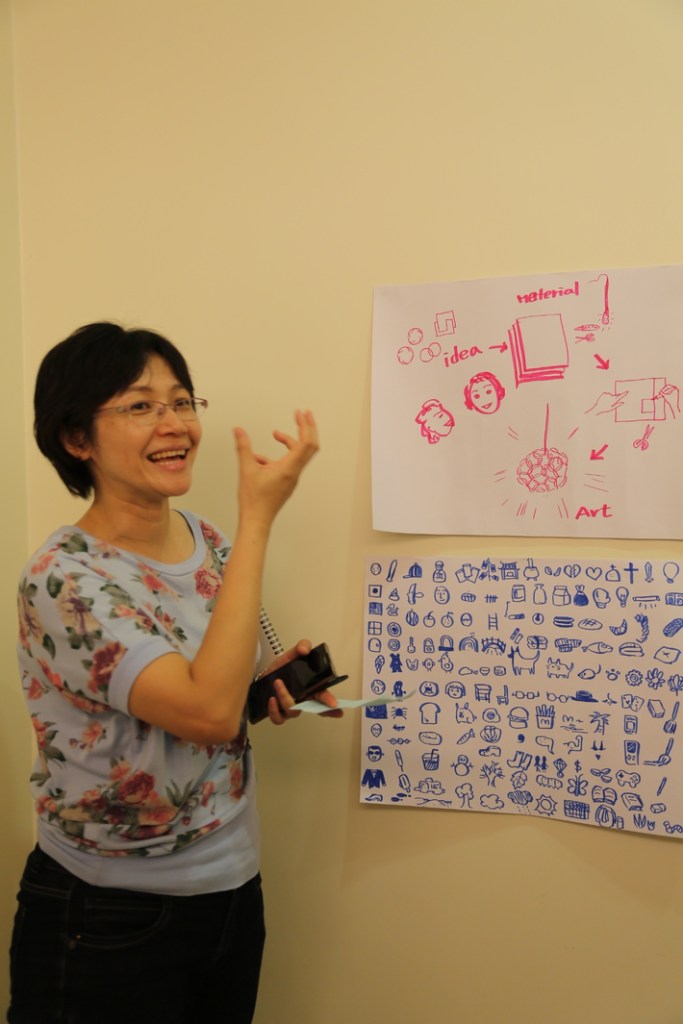 Material
idea
Art